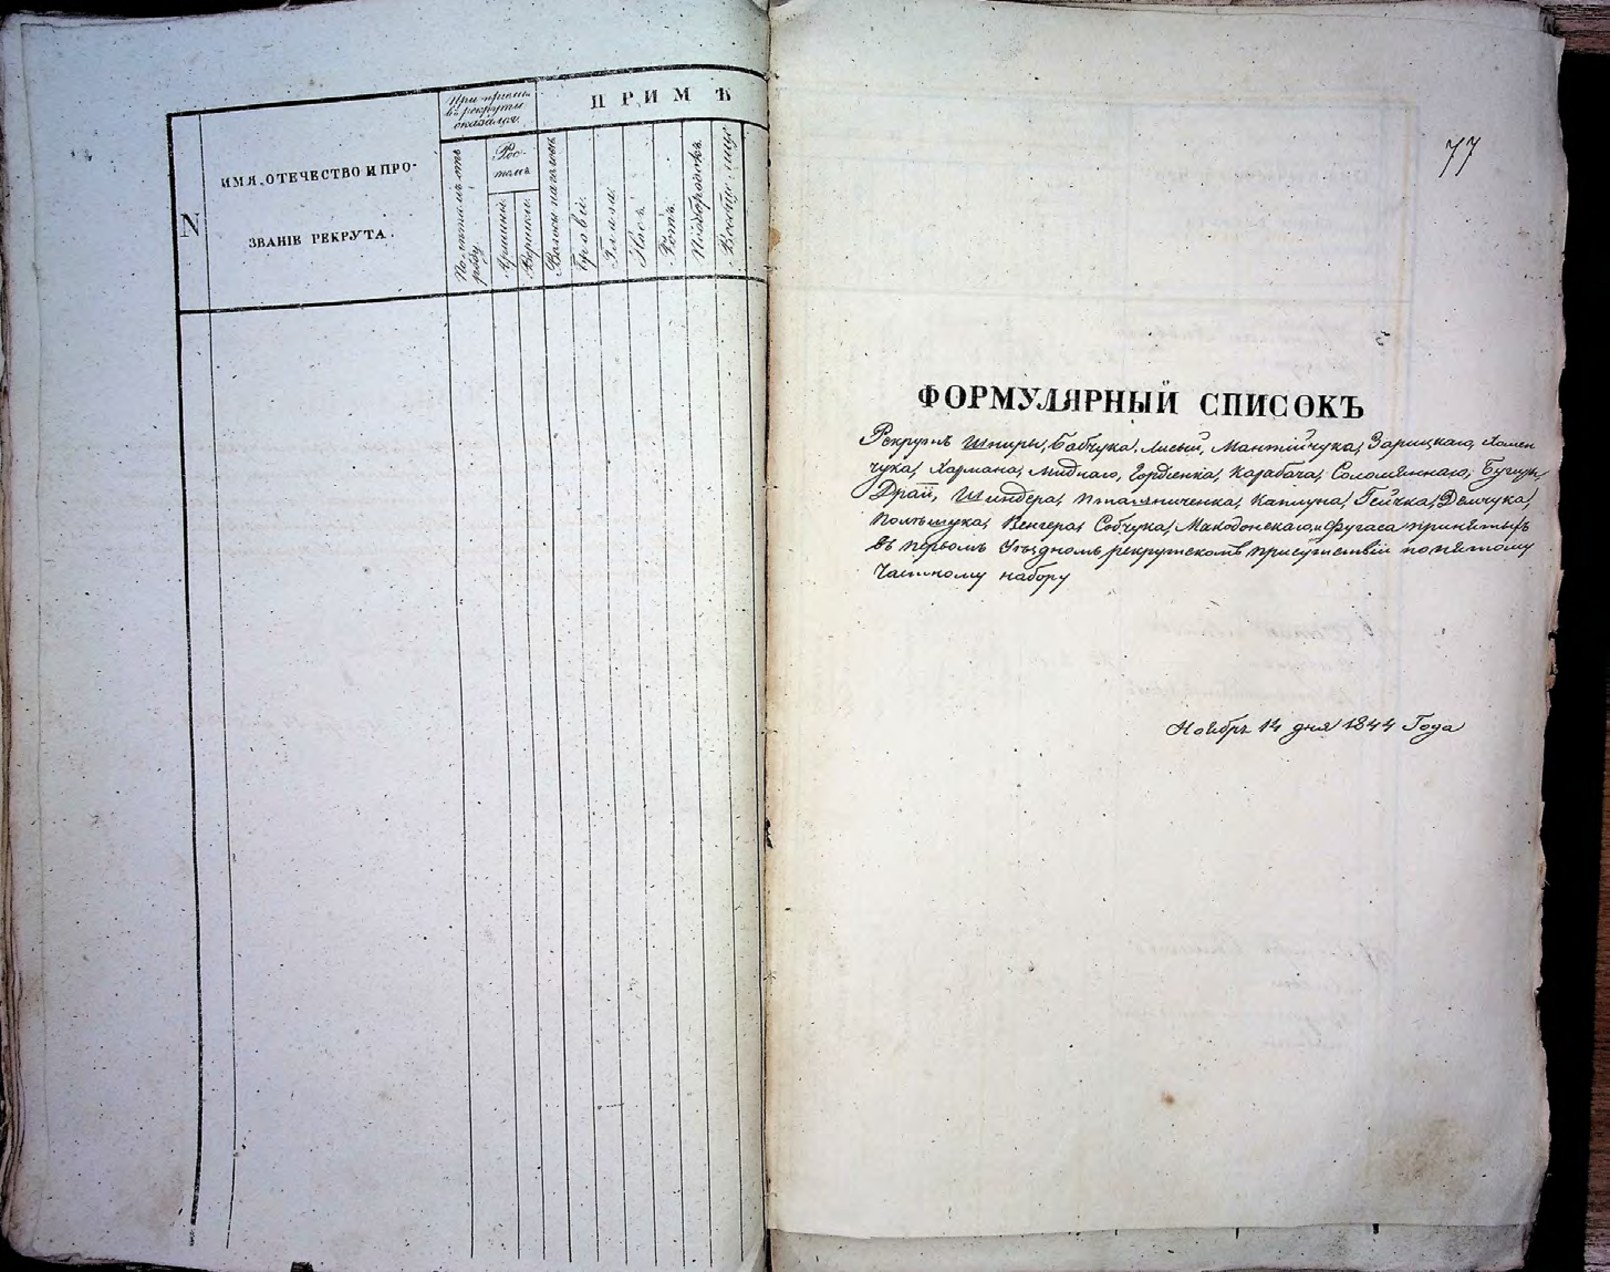 N
ИМЯ, ОТЕЧЕСТВО И ПРО-
ЗВАНІЕ РЕКРУТА.
При приемѣ
въ рекруты
оказался.
По лѣтамъ отъ
роду.
Рос-
томъ
Аршинъ.
Вершки.
П Р И М Ѣ
Волосы на головѣ
Брови.
Глаза.
Носъ.
Ротъ.
Подбородокъ.
Вообще лице
77
ФОРМУЛЯРНЫЙ СПИСОКЪ
Рекрутъ Шпиры, Бабчука, Лисый, Мантійчука, Зарицкаго, Хомен
чука, Хармана, Мидного, Гордіенка, Карабача, Соломяннаго,
Драй, Шиндера, Каплуна, Гейчка, Демчука,
Полѣщука, Венгера, Собчука, Македонскаго и Фугаса принятыхъ
въ первомъ Уѣздномъ рекрутскомъ присутствіи по пятому
Частному набору
Ноябрь 14 дня 1844 Года